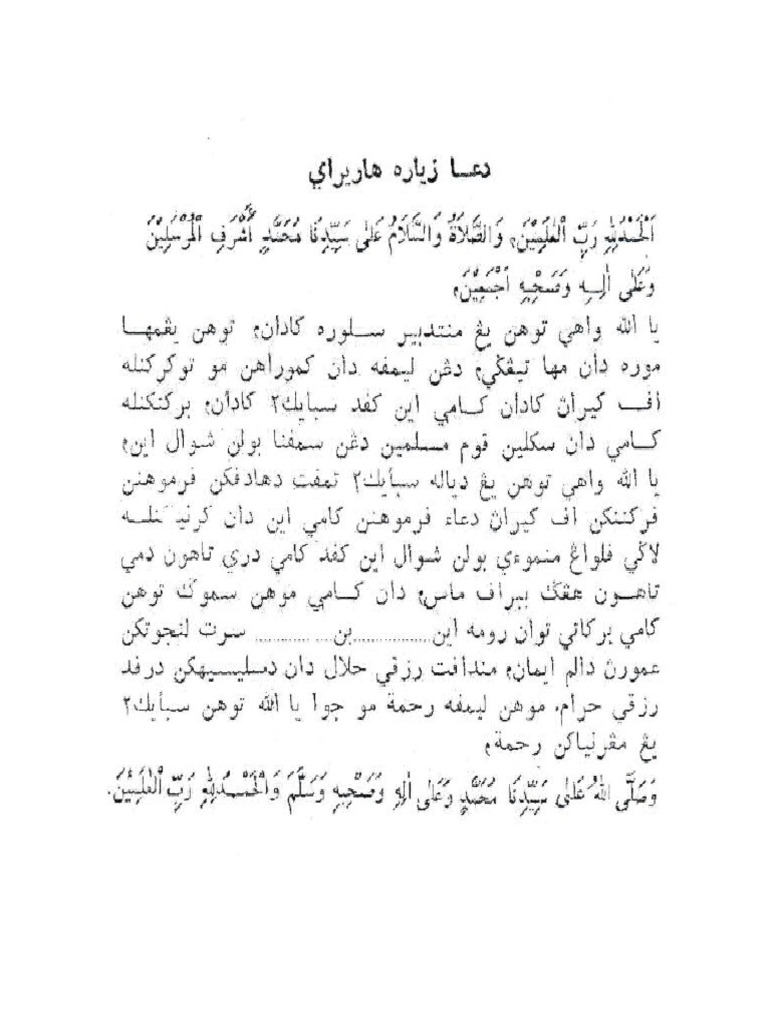 دعا زياره هاريراي
اَلْحَمْدُ لِلّٰهِ رَبِّ الْعٰلَمِيْنَ، وَالصَّلَاةُ وَالسَّلَامُ عَلٰى سَيِّدِنَا مُحَمَّدٍ أَشْرَفِ الْمُرْسَلِيْنَ
وَعَلٰى اٰلِهِ وَصَحْبِهِ اَجْمَعِيْنَ،
يا الله واهي توهن يڠ منتدبير سلوره كادان، توهن يڠمها
موره دان مها تيڠڬي، دڠن ليمفه دان كموراهن مو توكركنله
اف ڬيران كادان كامي اين كفد سبايك٢ كادان، بركتكنله
كامي دان سكلين قوم مسلمين دڠن سمفنا بولن شوال اين،
يا الله واهي توهن يڠ دياله سبأيك٢ تمفت دهادفكن فرموهنن
فركتنكن اف ڬيران دعاء فرموهنن كامي اين دان كرنياكنله
لاڬي فلواڠ منموءي بولن شوال اين كفد كامي دري تاهون دمي
تاهون هڠڬ ببراف ماس، دان كامي موهن سموڬ توهن
كامي بركاتي توان رومه اين................بن............... سرت لنجوتكن
عمورن دالم ايمان، مندافت رزقي حلال دان دسليسيهكن درفد
رزقي حرام. موهن ليمفه رحمة مو جوا يا الله توهن سبأيك٢
يڠ مڠرنياكن رحمة،
وَصَلَّى اللهُ عَلٰى سَيِّدِنَا مُحَمَّدٍ وَعَلٰى اٰلِهِ وَصَحْبِهِ وَسَلَّمَ وَالْحَمْدُ لِلّٰهِ رَبِّ الْعٰلَمِيْنَ.